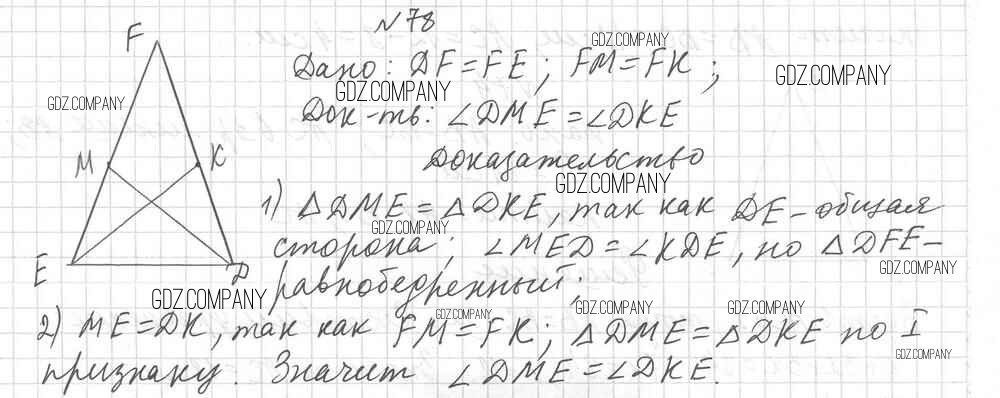 N 78
F
Дано: DF = FE; FM = FK;
GDZ.COMPANY
GDZ.COMPANY
GDZ.COMPANY
GDZ.COMPANY
Док-ть: ∠DME = ∠DKE
M
K
Доказательство
GDZ.COMPANY
1) △DME = △DKE, так как DE – общая
GDZ.COMPANY
сторона; ∠MED = ∠KDE, по △DFE –
E
D
GDZ.COMPANY
равнобедренный;
GDZ.COMPANY
GDZ.COMPANY
GDZ.COMPANY
GDZ.COMPANY
2) ME = DK, так как FM = FK; △DME = △DKE по I
GDZ.COMPANY
признаку. Значит ∠DME = ∠DKE.